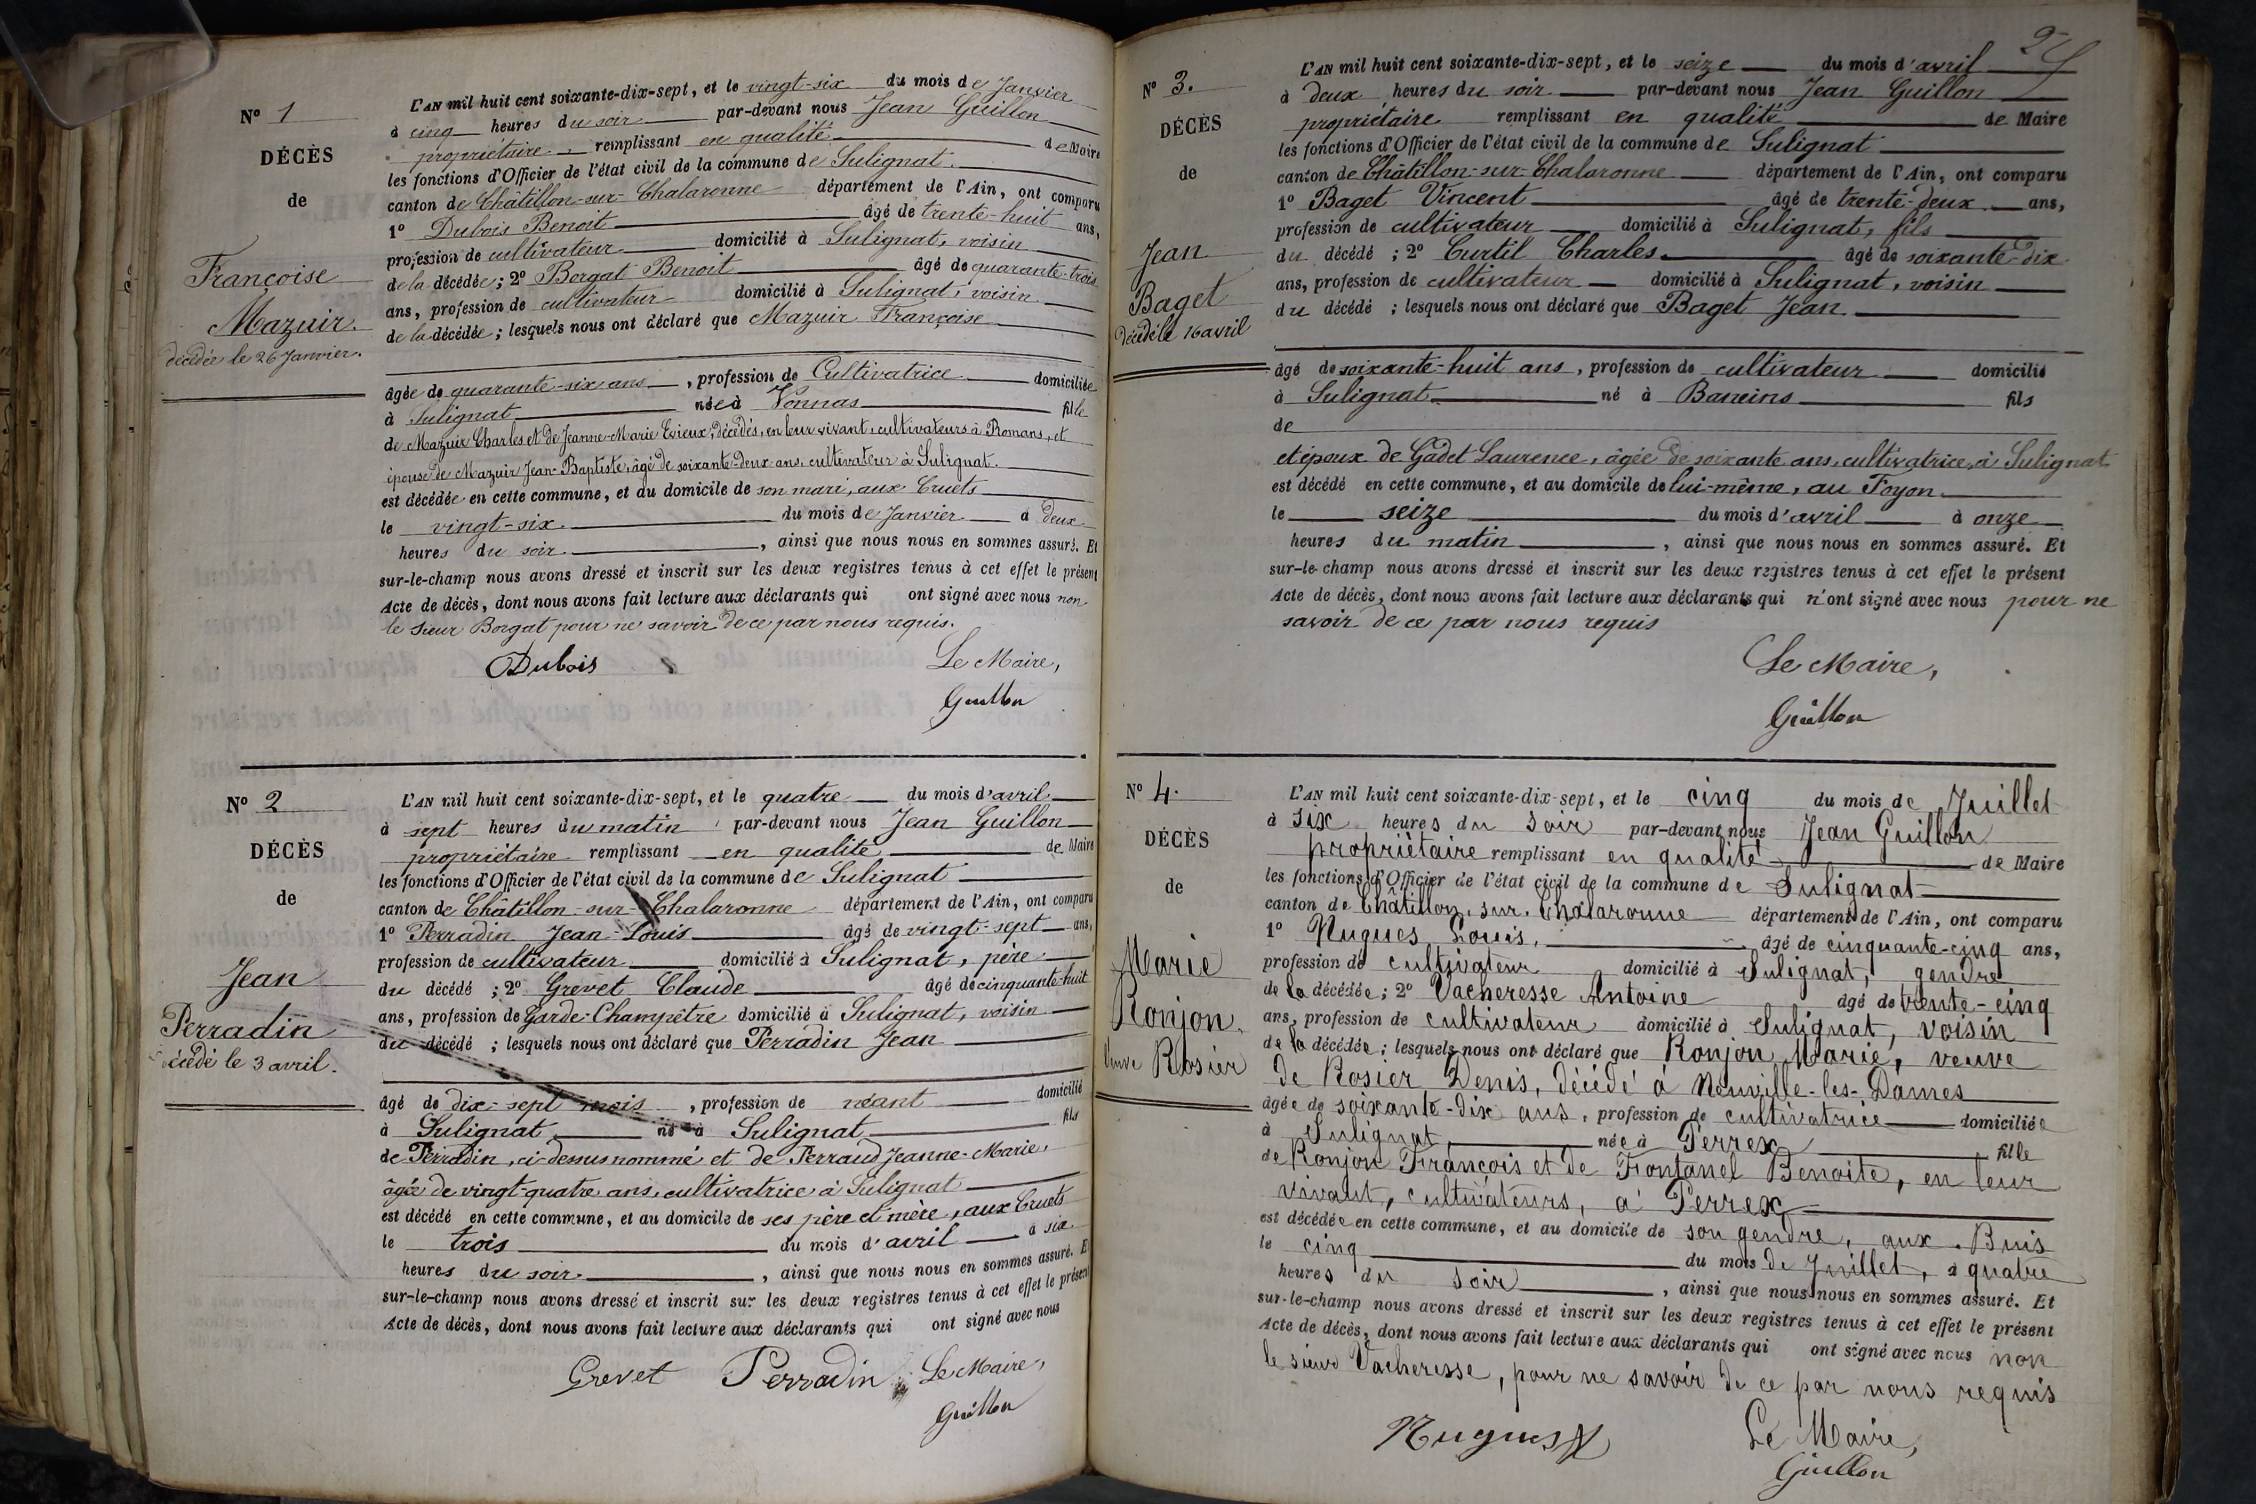 Nº 1
DÉCÈS
de
Françoise
Mazuir.
décédée le 26 Janvier.
L'AN mil huit cent soixante-dix-sept, et le vingt-six du mois de Janvier
à cinq heures du soir par-devant nous Jean Guillon
propriétaire, remplissant en qualité de Maire
les fonctions d'Officier de l'état civil de la commune de Sulignat.
canton de Châtillon-sur-Chalaronne département de l'Ain, ont comparu
1º Dubois Benoit âgé de trente-huit ans,
profession de cultivateur domicilié à Sulignat, voisin
de la décédée; 2º Borgat Benoit âgé de quarante-trois
ans, profession de cultivateur domicilié à Sulignat, voisin
de la décédée; lesquels nous ont déclaré que Mazuir Françoise
âgée de quarante-six ans, profession de Cultivatrice domiciliée
à Sulignat née à Vonnas fille
de Mazuir Charles et de Jeanne-Marie Evieux, décédés, en leur vivant, cultivateurs à Romans, et
épouse de Mazuir Jean-Baptiste, âgé de soixante-deux ans, cultivateur à Sulignat.
est décédée en cette commune, et du domicile de son mari, aux Cruets
le vingt-six. du mois de Janvier à deux
heures du soir., ainsi que nous nous en sommes assuré. Et
sur-le-champ nous avons dressé et inscrit sur les deux registres tenus à cet effet le présent
Acte de décès, dont nous avons fait lecture aux déclarants qui ont signé avec nous non
le sieur Borgat pour ne savoir de ce par nous requis.
Dubois Le Maire,
Guillon
Nº 2
DÉCÈS
de
Jean
Perradin
décédé le 3 avril.
L'AN mil huit cent soixante-dix-sept, et le quatre du mois d'avril
à sept heures du matin par-devant nous Jean Guillon
propriétaire remplissant en qualité de Maire
les fonctions d'Officier de l'état civil de la commune de Sulignat
canton de Châtillon-sur-Chalaronne département de l'Ain, ont comparu
1º Perradin Jean-Louis âgé de vingt-sept ans,
profession de cultivateur domicilié à Sulignat, père
du décédé; 2º Grevet Claude âgé de cinquante-huit
ans, profession de Garde-Champêtre domicilié à Sulignat, voisin
du décédé; lesquels nous ont déclaré que Perradin Jean
âgé de dix-sept mois, profession de néant domicilié
à Sulignat né à Sulignat fils
de Perradin, ci-dessus nommé et de Perraud Jeanne-Marie,
âgée de vingt-quatre ans, cultivatrice à Sulignat
est décédé en cette commune, et au domicile de ses père et mère, aux Cruets
le trois du mois d'avril à six
heures du soir., ainsi que nous nous en sommes assuré. Et
sur-le-champ nous avons dressé et inscrit sur les deux registres tenus à cet effet le présent
Acte de décès, dont nous avons fait lecture aux déclarants qui ont signé avec nous
Grevet Perradin Le Maire,
Guillon
Nº 3.
DÉCÈS
de
Jean
Baget
Décédé le 16 avril
L'AN mil huit cent soixante-dix-sept, et le seize du mois d'avril
à deux heures du soir par-devant nous Jean Guillon
propriétaire remplissant en qualité de Maire
les fonctions d'Officier de l'état civil de la commune de Sulignat
canton de Châtillon-sur-Chalaronne département de l'Ain, ont comparu
1º Baget Vincent âgé de trente-deux ans,
profession de cultivateur domicilié à Sulignat, fils
du décédé; 2º Curtil Charles. âgé de soixante-dix
ans, profession de cultivateur domicilié à Sulignat, voisin
du décédé; lesquels nous ont déclaré que Baget Jean
âgé de soixante-huit ans, profession de cultivateur domicilié
à Sulignat. né à Baneins fils
de
et époux de Gadet Laurence, âgée de soixante ans, cultivatrice à Sulignat
est décédé en cette commune, et au domicile de lui-même, au Foyon
le seize du mois d'avril à onze
heures du matin, ainsi que nous nous en sommes assuré. Et
sur-le-champ nous avons dressé et inscrit sur les deux registres tenus à cet effet le présent
Acte de décès, dont nous avons fait lecture aux déclarants qui n'ont signé avec nous pour ne
savoir de ce par nous requis
Le Maire,
Guillon
Nº 4.
DÉCÈS
de
Marie
Ronjon,
Veuve Rosier
L'AN mil huit cent soixante-dix-sept, et le cinq du mois de Juillet
à six heures du soir par-devant nous Jean Guillon
propriétaire remplissant en qualité de Maire
les fonctions d'Officier de l'état civil de la commune de Sulignat
canton de Châtillon sur Chalaronne département de l'Ain, ont comparu
1º Nugues Louis, âgé de cinquante-cinq ans,
profession de cultivateur domicilié à Sulignat, gendre
de la décédée; 2º Vacheresse Antoine âgé de trente-cinq
ans, profession de cultivateur domicilié à Sulignat, voisin
de la décédée; lesquels nous ont déclaré que Ronjon Marie, veuve
de Rosier Denis, décédé à Neuville-les-Dames
âgée de soixante-dix ans, profession de cultivatrice domiciliée
à Sulignat, née à Perrex fille
de Ronjon François et de Fontanel Benoite, en leur
vivant, cultivateurs, à Perrex
est décédée en cette commune, et au domicile de son gendre, aux Buis
le cinq du mois de Juillet, à quatre
heures du soir, ainsi que nous nous en sommes assuré. Et
sur-le-champ nous avons dressé et inscrit sur les deux registres tenus à cet effet le présent
Acte de décès, dont nous avons fait lecture aux déclarants qui ont signé avec nous non
le sieur Vacheresse, pour ne savoir de ce par nous requis
Nugues Le Maire,
Guillon